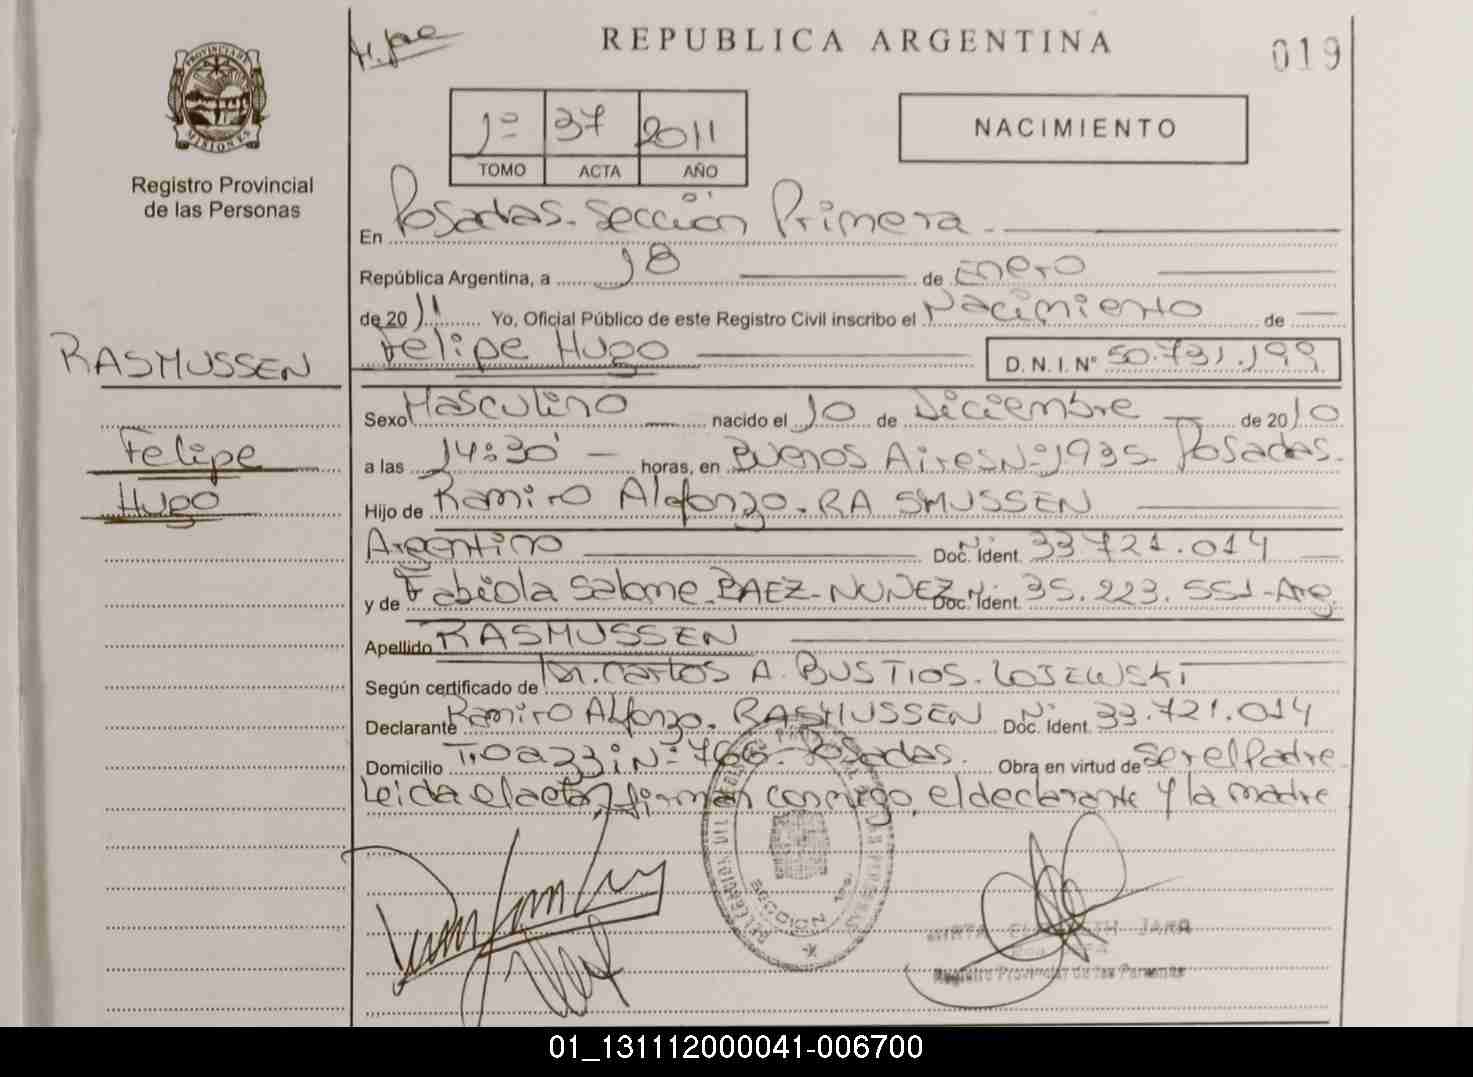 REPUBLICA ARGENTINA
019
PROVINCIA DE
MISIONES
Registro Provincial
de las Personas
1º 37 2011
TOMO ACTA AÑO
NACIMIENTO
En Posadas. Sección Primera
República Argentina, a 18 de Enero
de 2011 Yo, Oficial Público de este Registro Civil inscribo el Nacimiento de
RASMUSSEN
Felipe Hugo D.N.I. Nº 50.731.199
Sexo Masculino nacido el 10 de Diciembre de 2010
Felipe
a las 14:30' horas, en Buenos Aires Nº 1935. Posadas.
Hugo
Hijo de Ramiro Alfonzo. RASMUSSEN
Argentino Doc. Ident. Nº 33.721.014
y de Fabiola Salome. BAEZ-NUÑEZ Doc. Ident. Nº 35.223.551-Arg.
Apellido RASMUSSEN
Según certificado de Dr. Carlos A. BUSTIOS. LOJEWSKI
Declarante Ramiro Alfonzo. RASMUSSEN Doc. Ident. Nº 33.721.014
Domicilio Nº 766. Posadas. Obra en virtud de ser el Padre
Leida el acta, firman conmigo, el declarante y la madre
JARA
Registro Provincial de las Personas
01_131112000041-006700